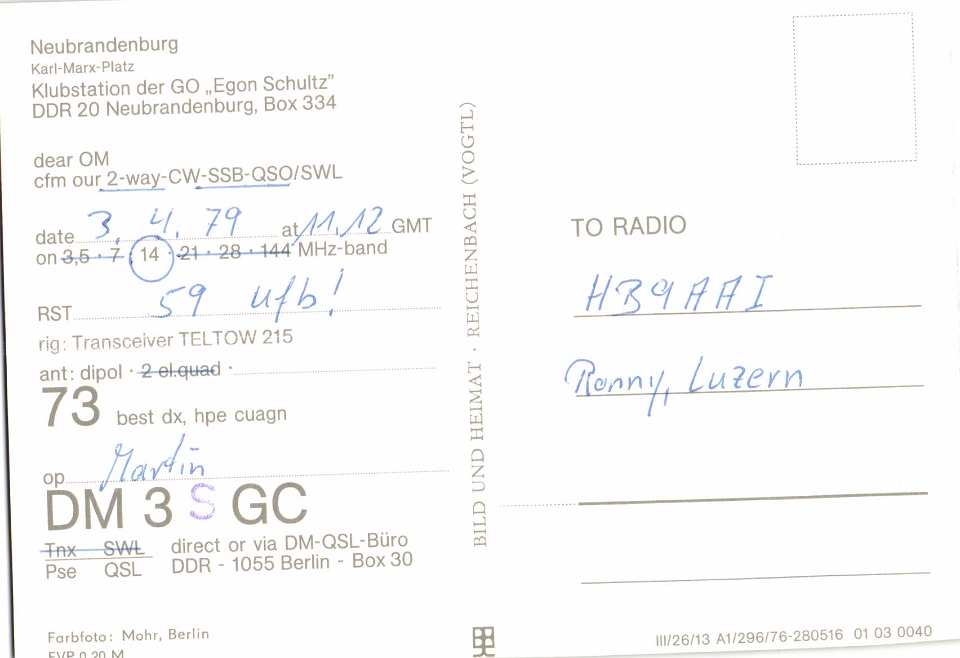 Neubrandenburg
Karl-Marx-Platz
Klubstation der GO „Egon Schultz”
DDR 20 Neubrandenburg, Box 334
dear OM
cfm our 2-way-CW-SSB-QSO/SWL
date 3. 4. 79 at 11.12 GMT
on 3,5 · 7 · 14 · 21 · 28 · 144 MHz-band
RST 59 ufb!
rig: Transceiver TELTOW 215
ant: dipol · 2 el.quad ·
73 best dx, hpe cuagn
op Martin
DM 3 S GC
Tnx SWL direct or via DM-QSL-Büro
Pse QSL DDR - 1055 Berlin - Box 30
Farbfoto: Mohr, Berlin
EVP 0,20 M
BILD UND HEIMAT · REICHENBACH (VOGTL)
TO RADIO
HB9AAI
Ronny, Luzern
III/26/13 A1/296/76-280516 01 03 0040